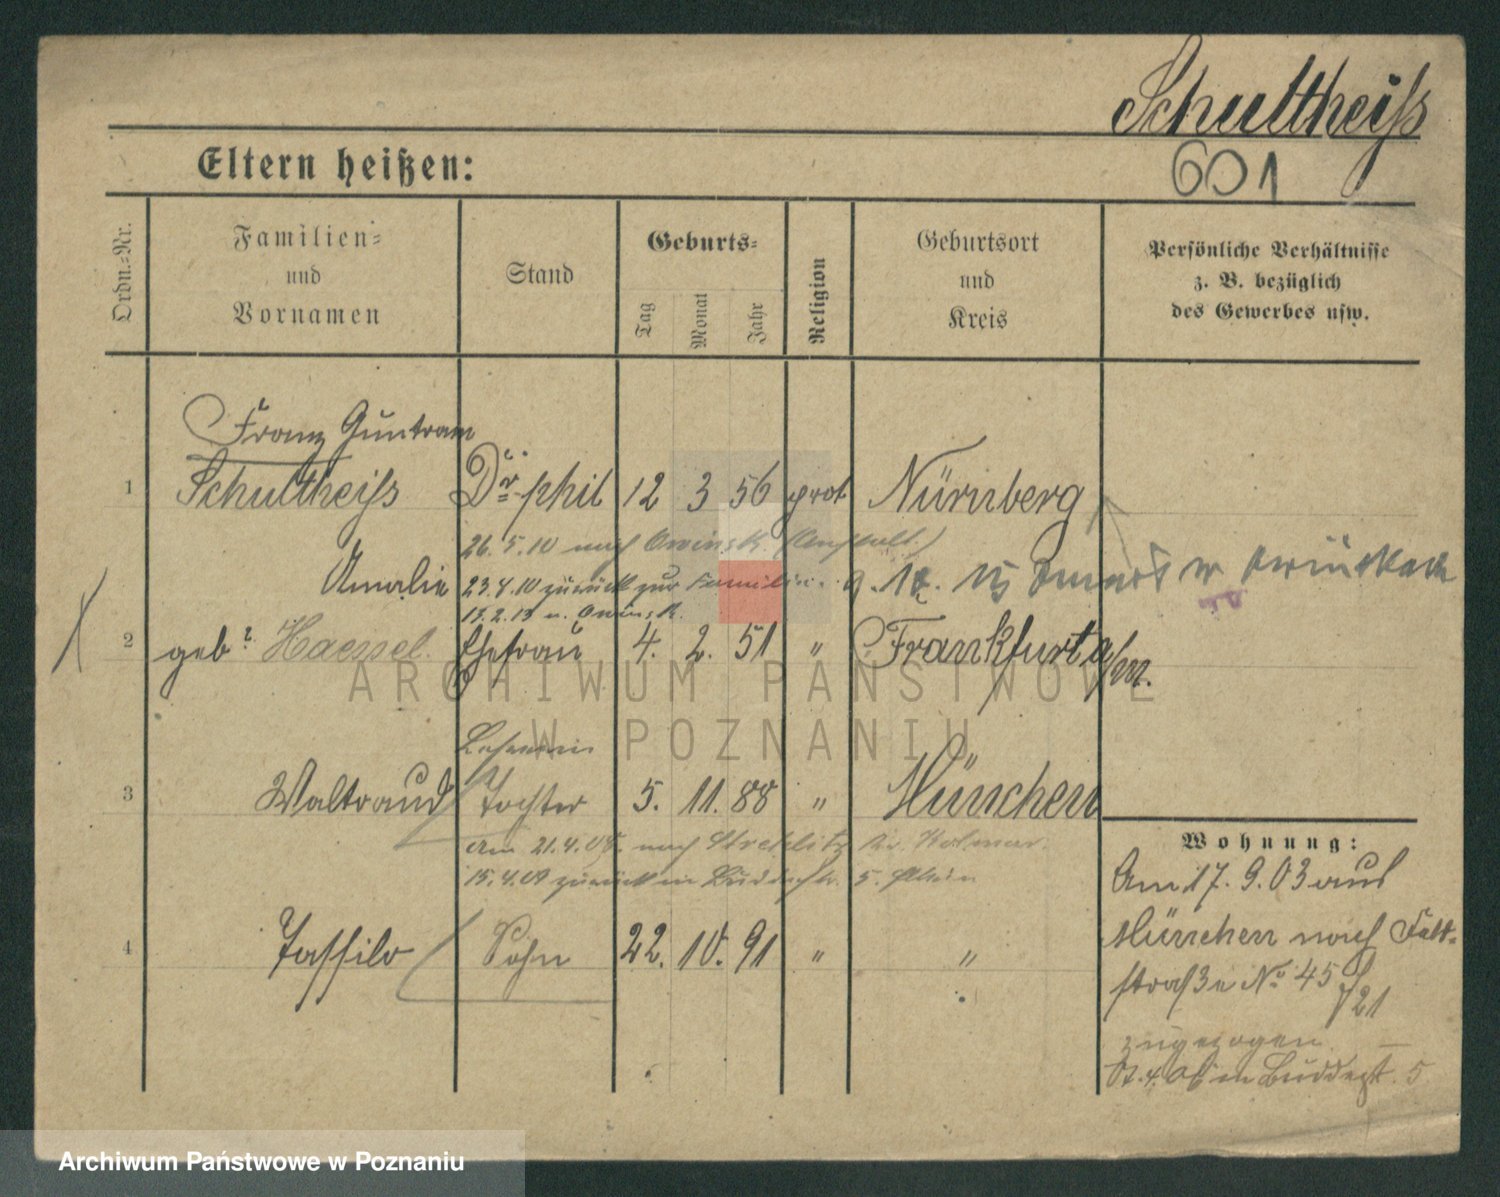 Schultheiſs
Eltern heißen:
601
Ordn.-Nr.
Familien-
und
Vornamen
Stand
Geburts-
Tag
Monat
Jahr
Religion
Geburtsort
und
Kreis
Persönliche Verhältnisse
z. B. bezüglich
des Gewerbes usw.
Franz Guntram
1 Schultheiſs Dr phil 12 3 56 prot Nürnberg
26. 5. 10 nach Owinsk. (Anstalt)
Amalie 23.4.10 zurück zur Familie.
13.2.13 n. Owinsk.
2 geb. Haessel Ehefrau 4. 2. 51 " Frankfurt a/m.
ARCHIWUM PAŃSTWOWE
W POZNANIU
Lehrerin
3 Waltraud Tochter 5. 11. 88 " München
Am 21.4.09. nach Strehlitz Kr. Kolmar.
15.4.09 zurück in Buddestr. 5.
4 Tassilo Sohn 22. 10. 91 " "
Wohnung:
Am 17. 9. 03 aus
München nach Feld-
straße No 45
21
zugezogen. —
4. 06 in Buddestr. 5
Archiwum Państwowe w Poznaniu